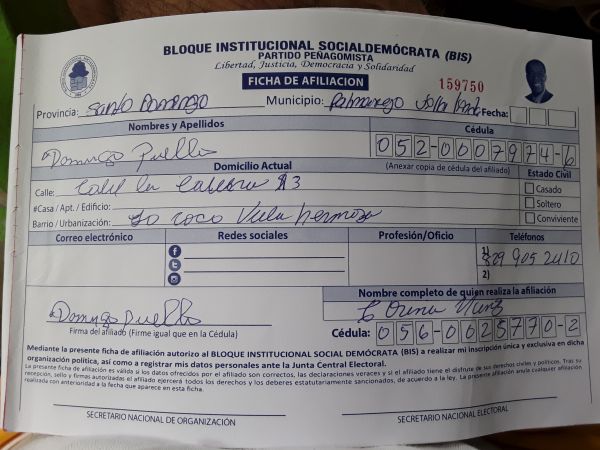 BLOQUE INSTITUCIONAL SOCIALDEMÓCRATA (BIS)
PARTIDO PEÑAGOMISTA
Libertad, Justicia, Democracia y Solidaridad
FICHA DE AFILIACION
159750
Provincia: Santo Domingo Municipio: Palmarejo Villa Fecha:
Nombres y Apellidos Cédula
Domingo Puello 052-0007974-6
Domicilio Actual (Anexar copia de cédula del afiliado) Estado Civil
Calle: Calle la 13 Casado
#Casa / Apt. / Edificio: Soltero
Barrio / Urbanización: Lo coco Villa hermosa Conviviente
Correo electrónico Redes sociales Profesión/Oficio Teléfonos
1) 829 905 2410
2)
Nombre completo de quien realiza la afiliación
Domingo puello
Firma del afiliado (Firme igual que en la Cédula) Cédula: 056-0025770-2
Mediante la presente ficha de afiliación autorizo al BLOQUE INSTITUCIONAL SOCIAL DEMÓCRATA (BIS) a realizar mi inscripción única y exclusiva en dicha
organización política, así como a registrar mis datos personales ante la Junta Central Electoral.
La presente ficha de afiliación es válida si los datos ofrecidos por el afiliado son correctos, las declaraciones veraces y si el afiliado tiene el disfrute de sus derechos civiles y políticos. Tras su
recepción, sello y firmas autorizadas el afiliado ejercerá todos los derechos y los deberes estatutariamente sancionados, de acuerdo a la ley. La presente afiliación anula cualquier afiliación
realizada con anterioridad a la fecha que aparece en esta ficha.
SECRETARIO NACIONAL DE ORGANIZACIÓN SECRETARIO NACIONAL ELECTORAL